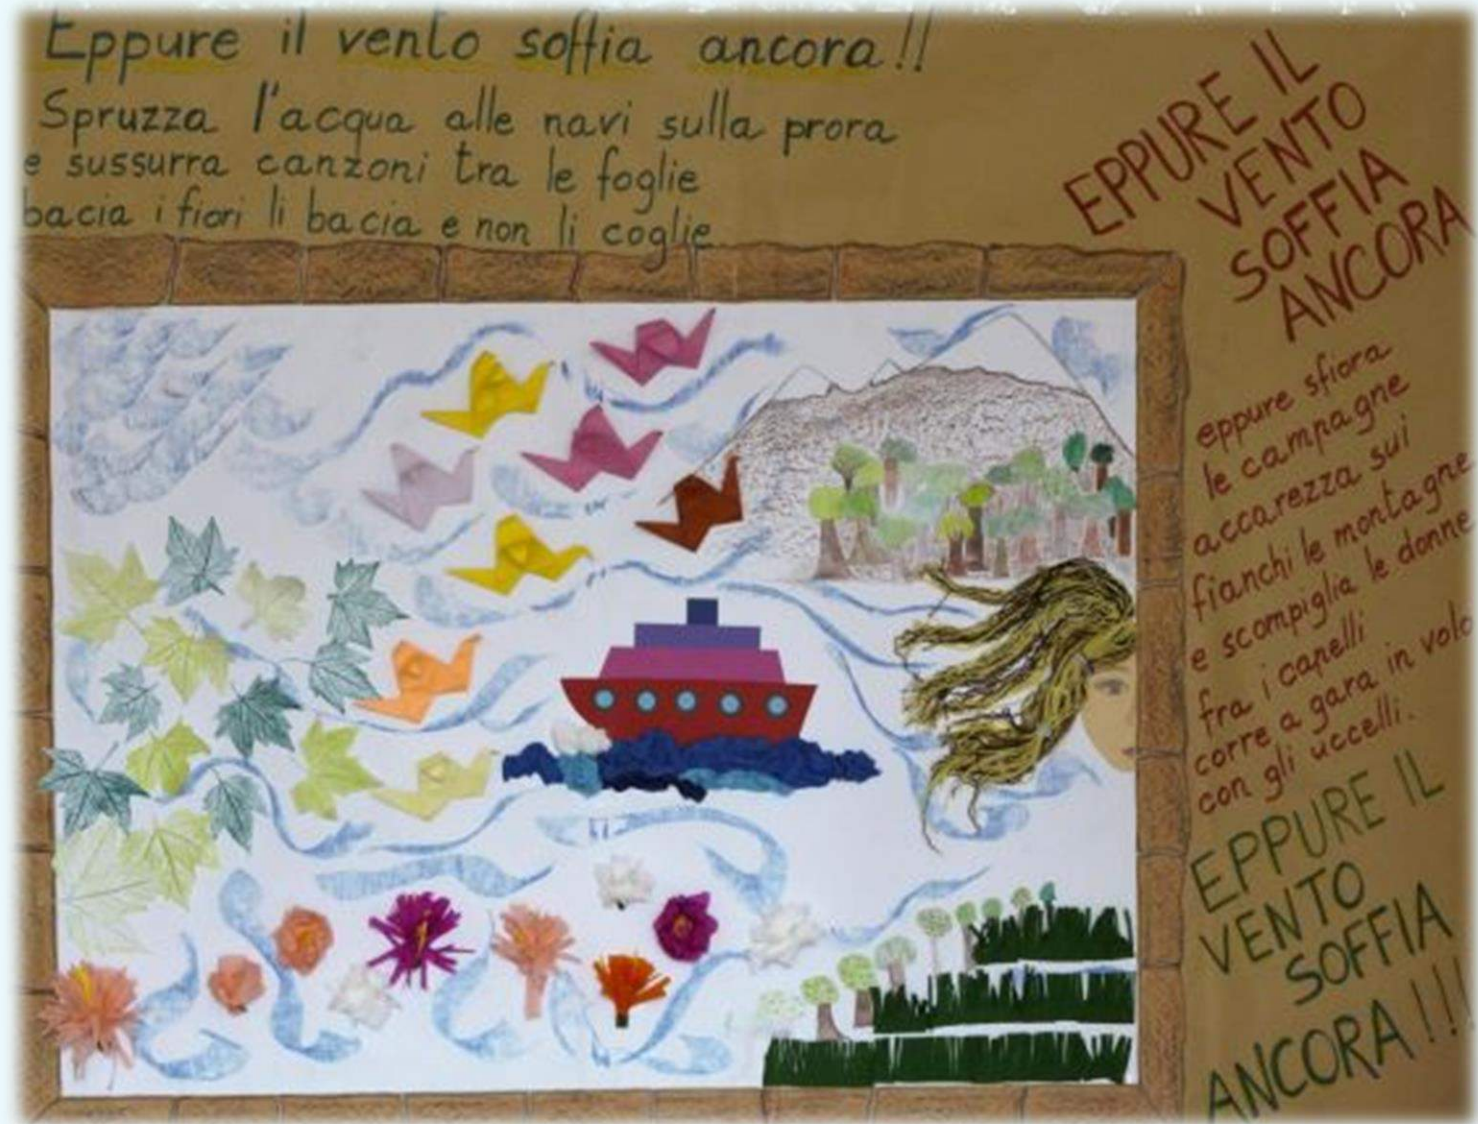 Eppure il vento soffia ancora!!
Spruzza l'acqua alle navi sulla prora
e sussurra canzoni tra le foglie
bacia i fiori li bacia e non li coglie
EPPURE IL
VENTO
SOFFIA
ANCORA
eppure sfiora
le campagne
accarezza sui
fianchi le montagne
e scompiglia le donne
fra i capelli
corre a gara in volo
con gli uccelli.
EPPURE IL
VENTO
SOFFIA
ANCORA!!!